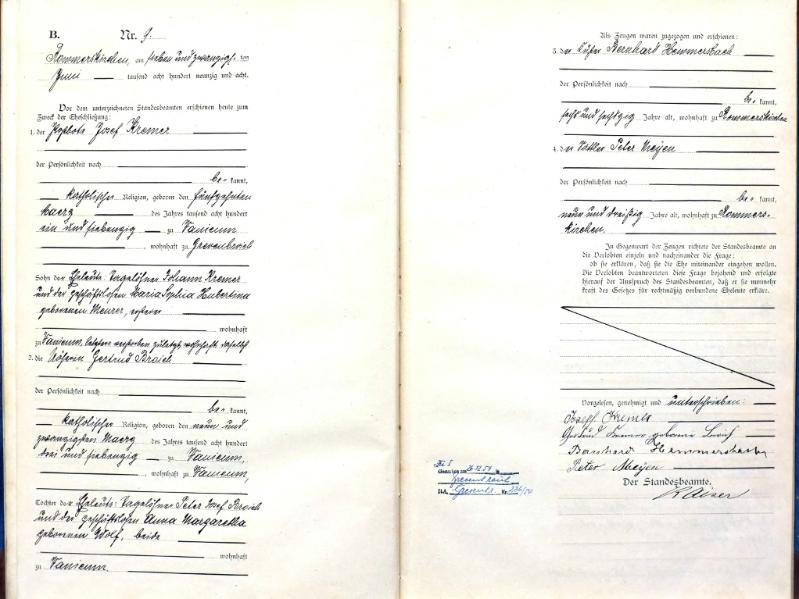 B. Nr. 9.
Rommerskirchen, am sieben und zwanzigsten
Juni tausend acht hundert neunzig und acht.
Vor dem unterzeichneten Standesbeamten erschienen heute zum
Zweck der Eheschließung:
1. der Josef Kremer
der Persönlichkeit nach
be- kannt,
katholischer Religion, geboren den fünfzehnten
Maerz des Jahres tausend acht hundert
ein und siebenzig zu Vanicum
, wohnhaft zu Grevenbroich
Sohn der Eheleute: Tagelöhner Johann Kremer
und der geschäftslosen Maria Sophia Hubertina
geborenen Meurer, ersterer
wohnhaft
zu Vanicum, letztere verstorben zuletzt wohnhaft daselbst
2. die Gertrud Broich
der Persönlichkeit nach
be- kannt,
katholischer Religion, geboren den neun und
zwanzigsten Maerz des Jahres tausend acht hundert
drei und siebenzig zu Vanicum,
, wohnhaft zu Vanicum,
Tochter der Eheleute: Tagelöhner Peter Josef Broich
und der geschäftslosen Anna Margaretha
geborenen Wolf, beide
wohnhaft
zu Vanicum.
Als Zeugen waren zugezogen und erschienen:
3. der Küfer Bernhard Hemmersbach
der Persönlichkeit nach
be- kannt,
sechs und sechzig Jahre alt, wohnhaft zu Rommerskirchen
4. der Sattler Peter Meyen
be- kannt,
neun und dreißig Jahre alt, wohnhaft zu Rommers-
kirchen.
In Gegenwart der Zeugen richtete der Standesbeamte an
die Verlobten einzeln und nacheinander die Frage:
ob sie erklären, daß sie die Ehe miteinander eingehen wollen.
Die Verlobten beantworteten diese Frage bejahend und erfolgte
hierauf der Ausspruch des Standesbeamten, daß er sie nunmehr
kraft des Gesetzes für rechtmäßig verbundene Eheleute erkläre.
Vorgelesen, genehmigt und unterschrieben:
Josef Kremer
Gertrud Kremer geborene Broich
Bernhard Hemmersbach
Peter Meyen
Der Standesbeamte.